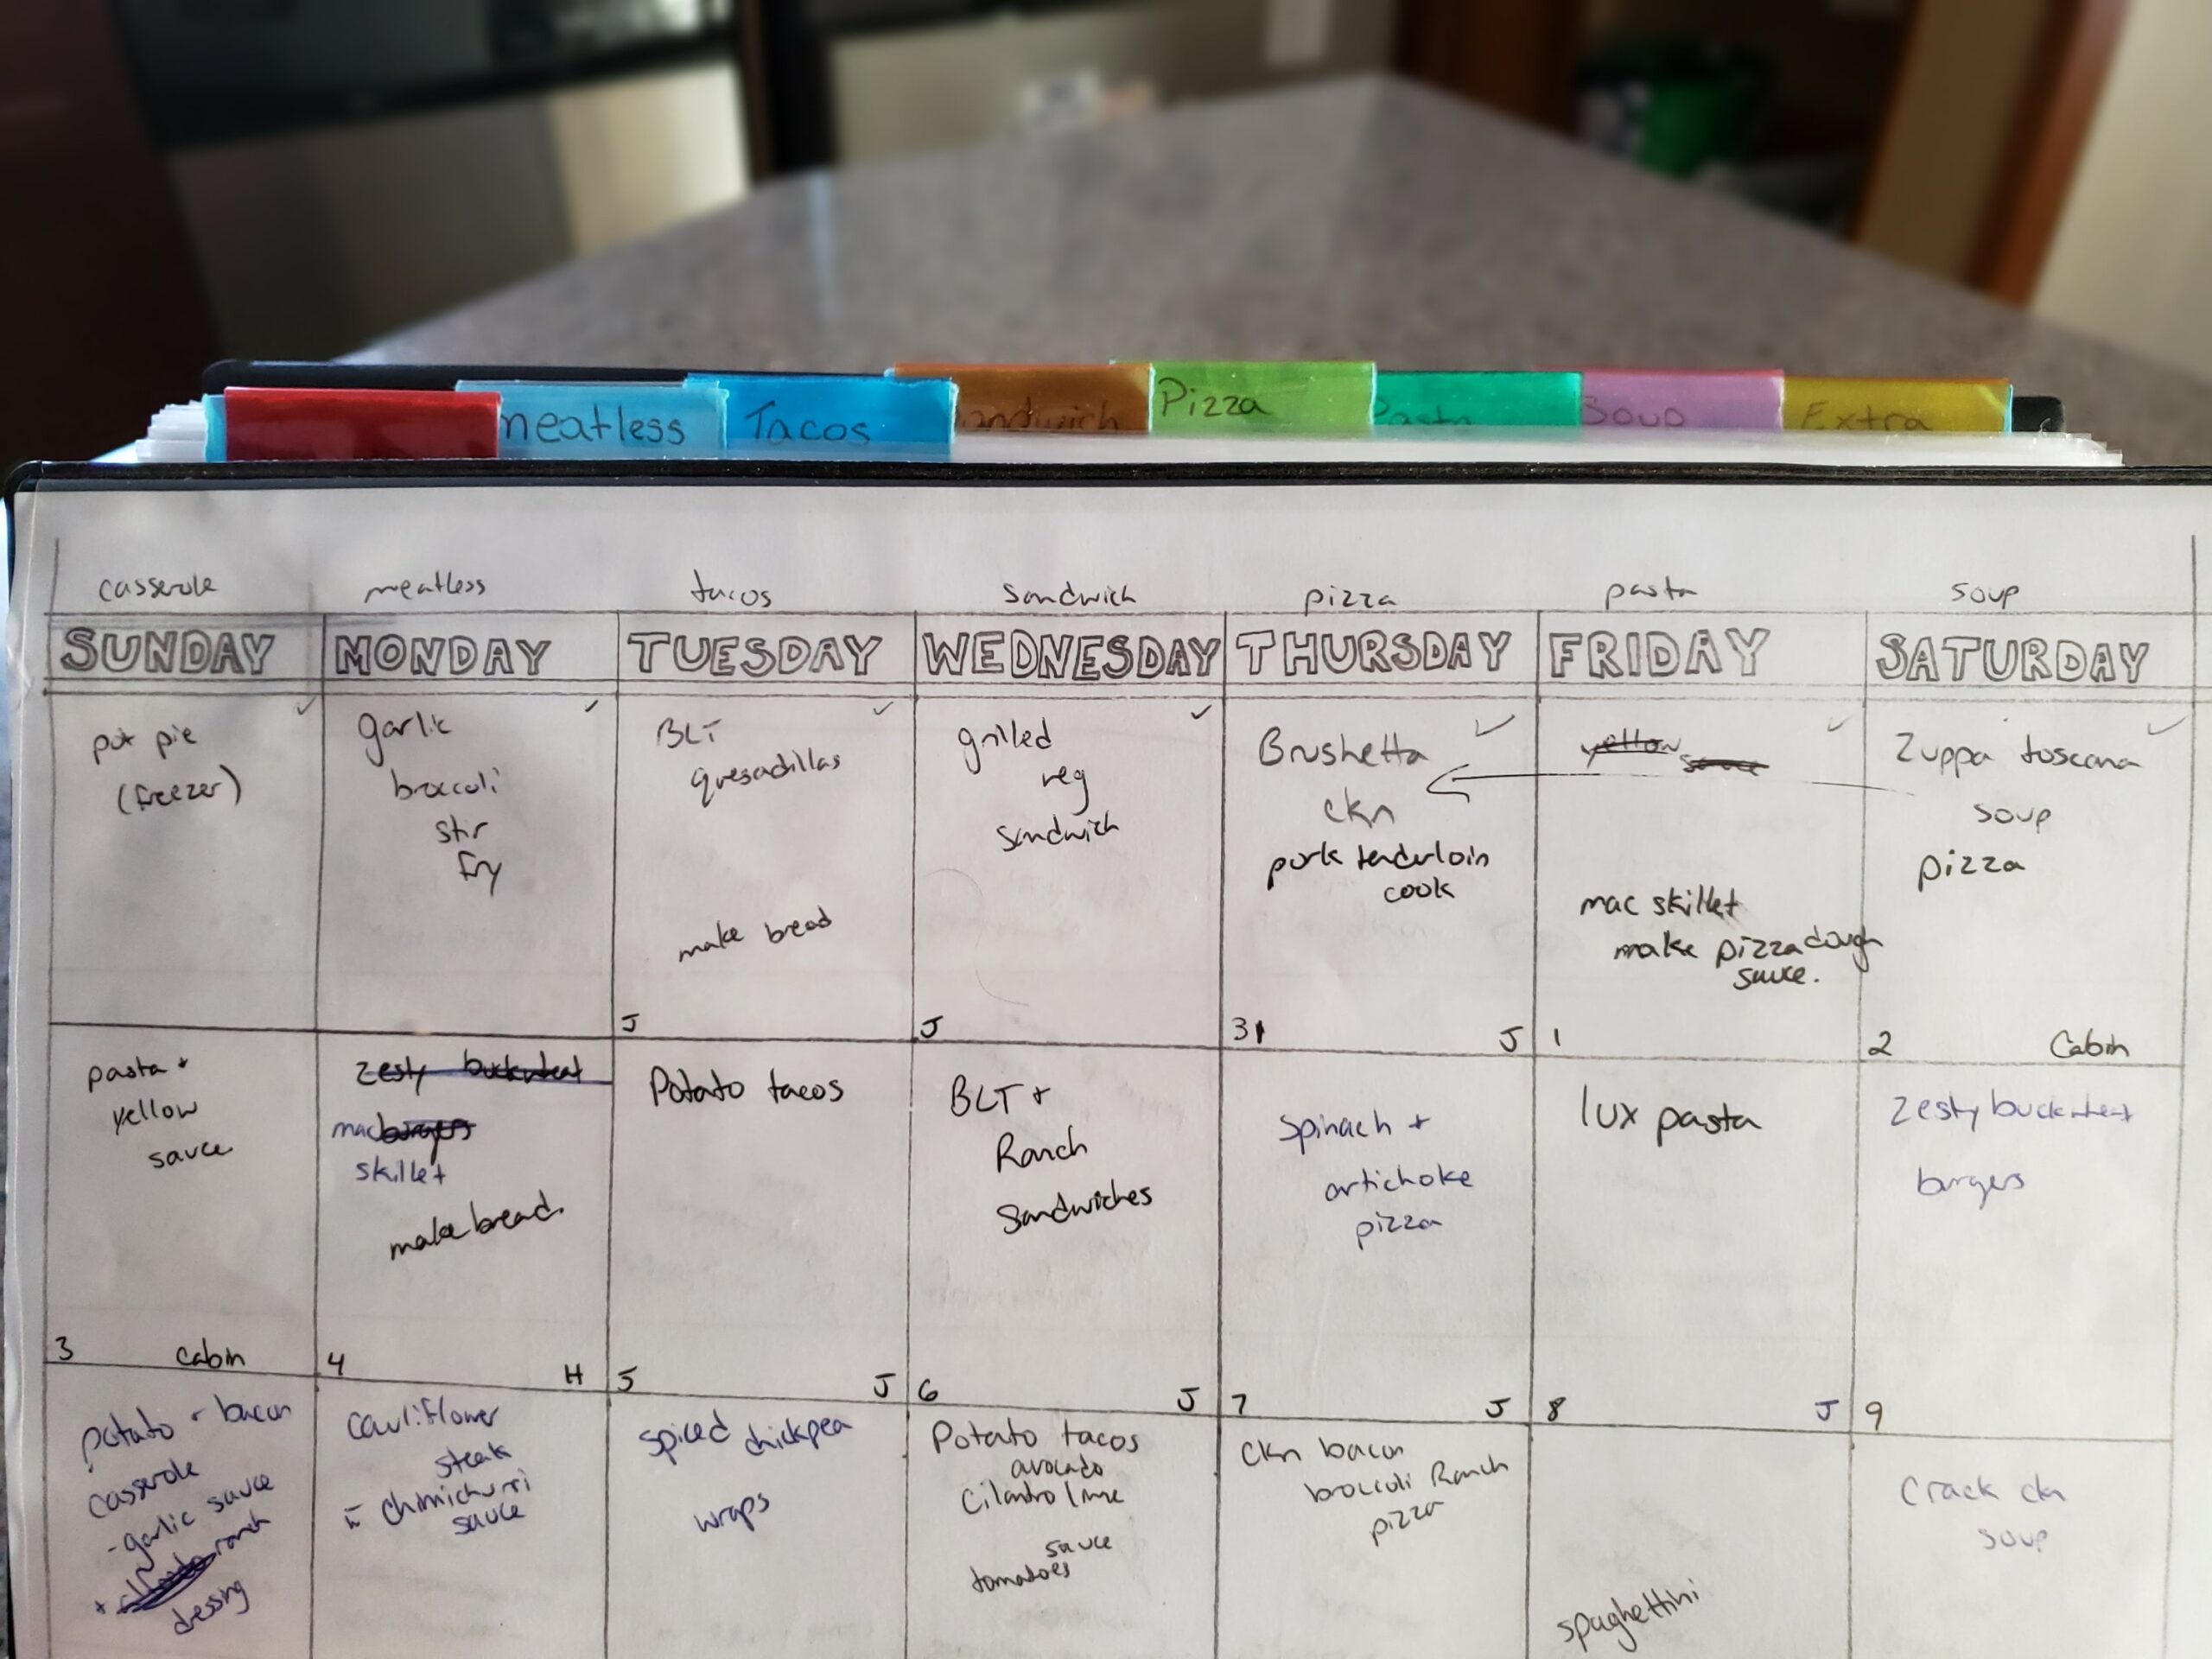 meatless Tacos Sandwich Pizza Pasta Soup Extra
casserole meatless tacos sandwich pizza pasta soup
SUNDAY MONDAY TUESDAY WEDNESDAY THURSDAY FRIDAY SATURDAY
pot pie
(freezer)
garlic
broccoli
stir
fry
BLT
quesadillas
make bread
J
grilled
reg
sandwich
J
Brushetta
ckn
pork tenderloin
cook
31 J
yellow
sauce
mac skillet
make pizza dough
sauce.
1
Zuppa toscana
soup
pizza
2 Cabin
pasta +
yellow
sauce
3 Cabin
zesty buckwheat
mac burgers
skillet
make bread
4 H
Potato tacos
5 J
BLT +
Ranch
Sandwiches
6 J
Spinach +
artichoke
pizza
7 J
lux pasta
8 J
Zesty buckwheat
burgers
9
potato + bacon
casserole
- garlic sauce
+ ranch
dressing
Cauliflower
steak
chimichurri
sauce
spiced chickpea
wraps
Potato tacos
avocado
Cilantro lime
sauce
tomatoes
Ckn bacon
broccoli Ranch
pizza
spaghettini
Crack ckn
soup